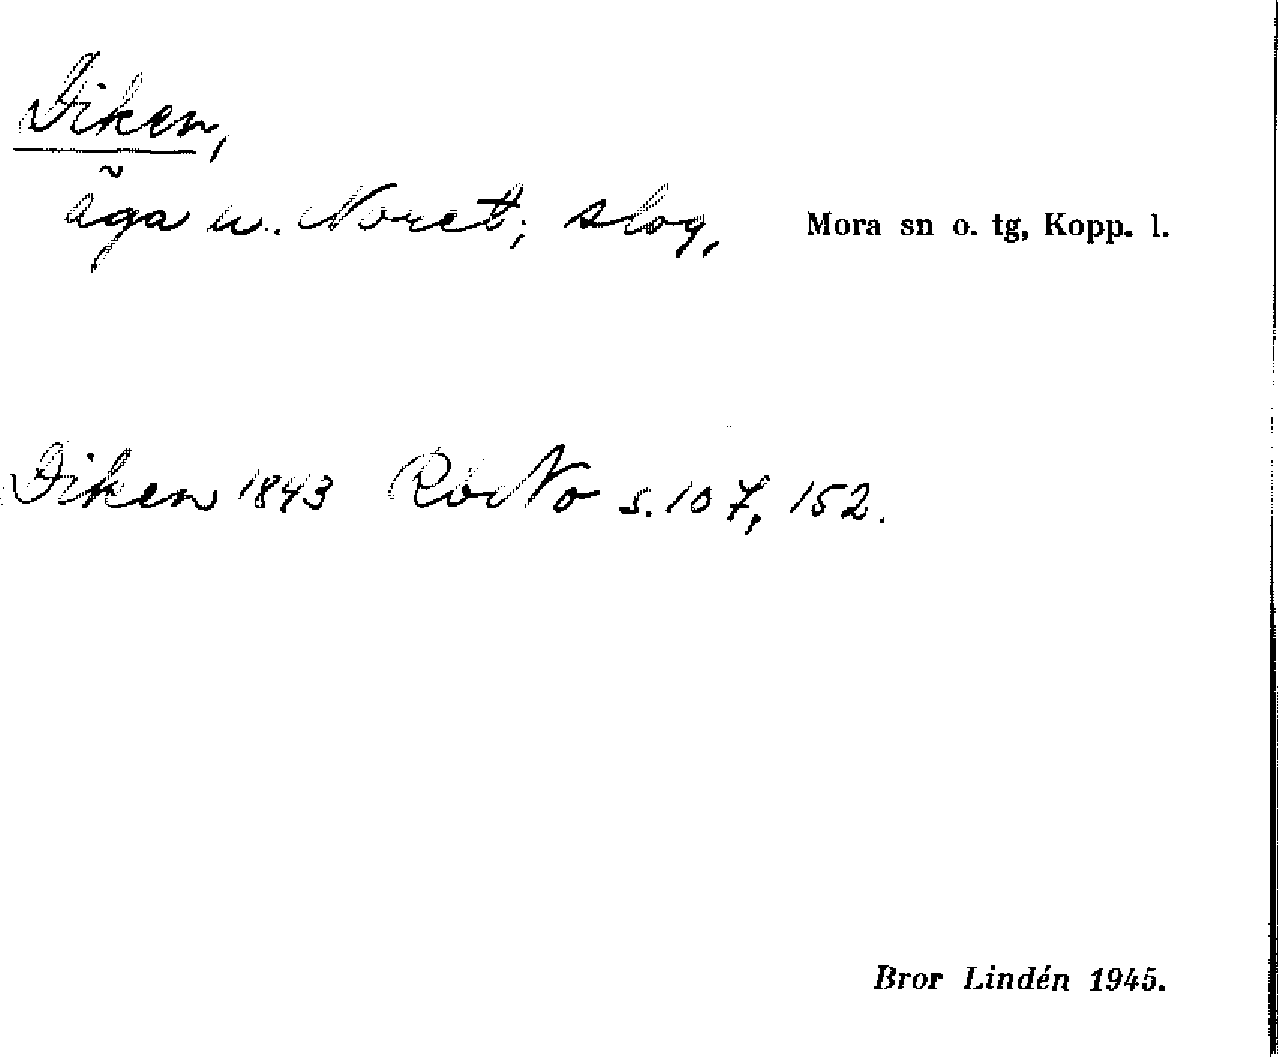 Diken,
äga u. Noret; slog, Mora sn o. tg, Kopp. l.
Diken 1843 RbNo s. 107, 152.
Bror Lindén 1945.